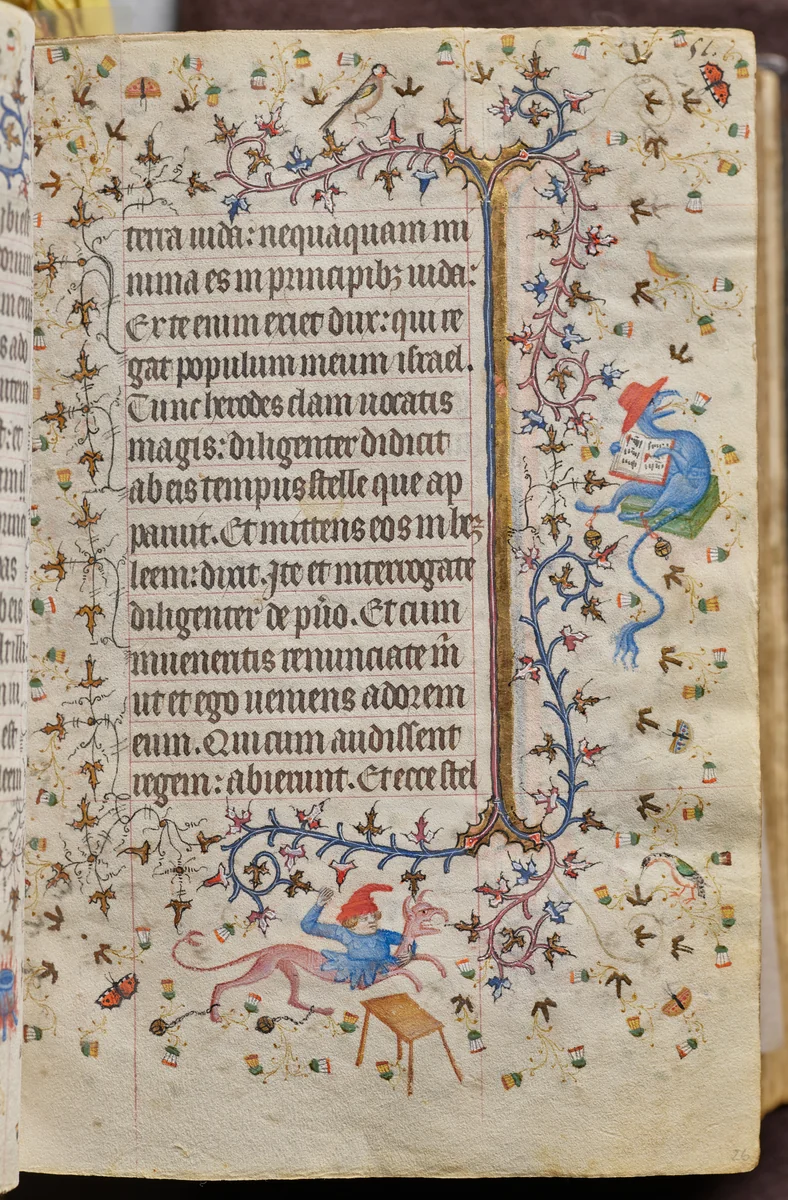 terra iuda: nequaquam mi
nima es in principibꝫ iuda:
Ex te enim exiet dux: qui re
gat populum meum israel.
Tunc herodes clam uocatis
magis: diligenter didicit
ab eis tempus stelle que ap
paruit. Et mittens eos in be
leem: dixit. Ite et interrogate
diligenter de pũo. Et cum
inueneritis renunciate m̃
ut et ego ueniens adorem
eum. Qui cum audissent
regem: abierunt. Et ecce stel
26